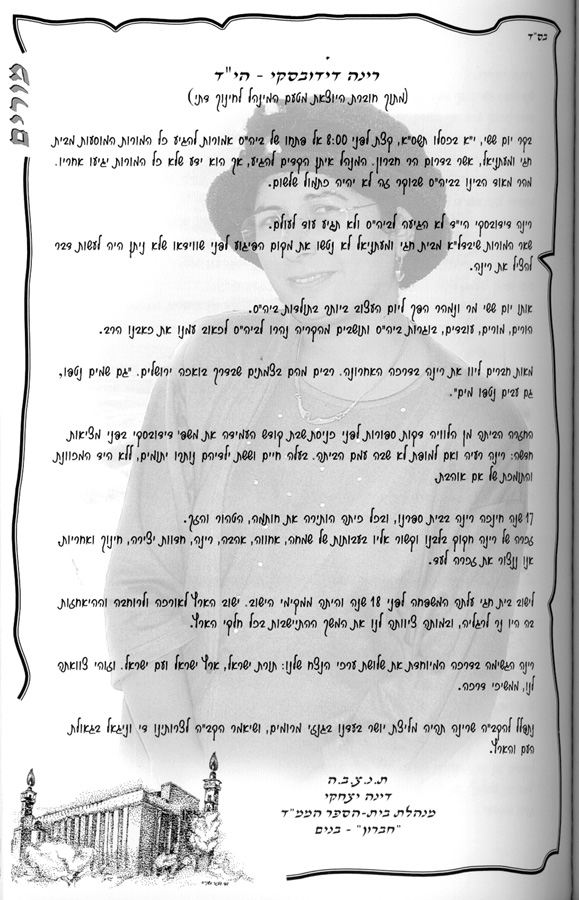 בס"ד
מורים
רינה דידובסקי - הי"ד
(מתוך חוברת היוצאת מטעם המינהל לחינוך דתי)
בקר יום ששי, י"א בכסלו תשס"א, קצת לפני 8:00 אל פתחו של ביה"ס אמורות להגיע כל המורות המוסעות מבית
חגי ומעתניאל, אשר בדרום הר חברון. המנהל איתן הקדים להגיע, אך הוא ידע שלא כל המורות יגיעו אחריו.
מהר מאוד הבינו בביה"ס שבוקר זה לא יהיה כתמול שלשום.
רינה דידובסקי הי"ד לא הגיעה לביה"ס ולא תגיע עוד לעולם.
שאר המורות שיבדל"א מבית חגי ומעתניאל לא נטשו את מקום הפיגוע לפני שווידאו שלא ניתן היה לעשות דבר
להציל את רינה.
אותו יום ששי מר ונמהר הפך ליום העצוב ביותר בתולדות ביה"ס.
הורים, מורים, עובדים, בוגרות ביה"ס ותושבים מהקריה נהרו לביה"ס לכאוב עמנו את כאבנו הרב.
מאות חברים ליוו את רינה בדרכה האחרונה. רבים מהם בצמתים שבדרך בואכה ירושלים. "גם שמים נטפו,
גם עבים נטפו מים".
החזרה הביתה מן הלוויה דקות ספורות לפני כניסת שבת קודש העמידה את משפ' דידובסקי בפני מציאות
חדשה: רינה רעיה ואם למופת לא שבה עמם הביתה. בעלה חיים וששת ילדיהם נותרו יתומים, ללא היד המכוונת
והתומכת של אם אוהבת.
17 שנה חינכה רינה בבית ספרנו, ובכל כיתה הותירה את חותמה, הטהור והזך.
זכרה של רינה חקוק בלבנו וקשור אליו בעבותות של שמחה, אחווה, אהבה, רינה, חדוות יצירה, חינוך ואחריות
אנו ננצור את זכרה לעד.
לישוב בית חגי עלתה המשפחה לפני 18 שנה והיתה ממקימי הישוב. ישוב הארץ לאורכה ולרוחבה וההיאחזות
בה היו נר לרגליה, ובמותה ציוותה לנו את המשך ההתיישבות בכל חלקי הארץ.
רינה הגשימה בדרכה המיוחדת את שלושת ערכי הנצח שלנו: תורת ישראל, ארץ ישראל ועם ישראל. וזוהי צוואתה
לנו, ממשיכי דרכה.
נתפלל להקב"ה שרינה תהיה מליצת יושר בעדנו בגנזי מרומים, ושיאמר הקב"ה לצרותינו די וניגאל בגאולת
העם והארץ.
ת.נ.צ.ב.ה
דינה יצחקי
מנהלת בית-הספר הממ"ד
"חברון" - בנים